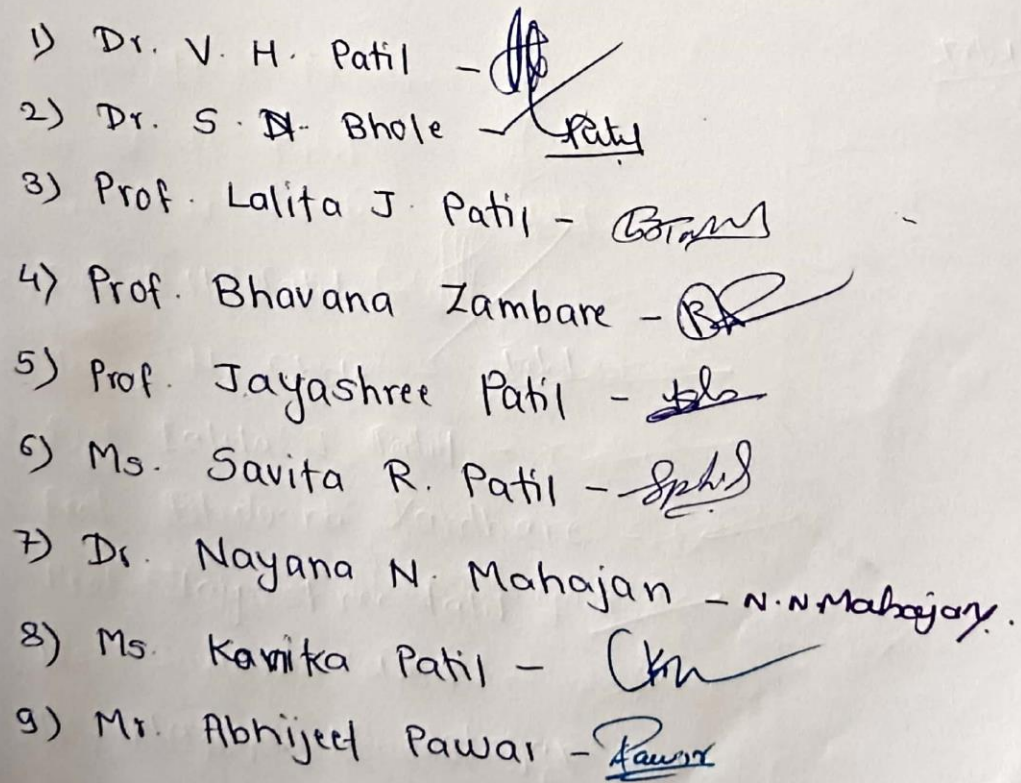 1) Dr. V. H. Patil -
2) Dr. S. N. Bhole -
3) Prof. Lalita J. Patil -
4) Prof. Bhavana Zambare -
5) Prof. Jayashree Patil -
6) Ms. Savita R. Patil -
7) Dr. Nayana N. Mahajan - N.N.Mahajan.
8) Ms. Patil -
9) Mr. Abhijeet Pawar - Pawar